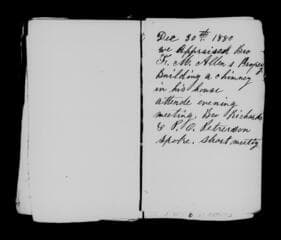 Dec 30th 1880
we appraised Bro
F. M. Allens Propery
Building a chimney
in his house
attende evening
meeting. Bro Richards
& P. O. Peterson
spoke. short meeting